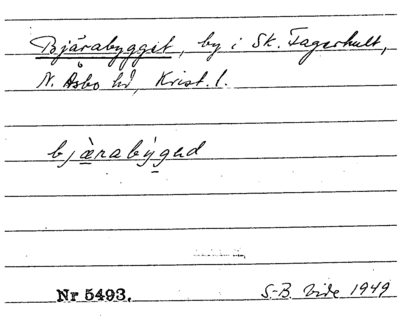 Bjärabygget, by i Sk. Fagerhult,
N. Åsbo hd, Krist. l.
bjæ̀rabýged
Nr 5493. S-B. Vide 1949